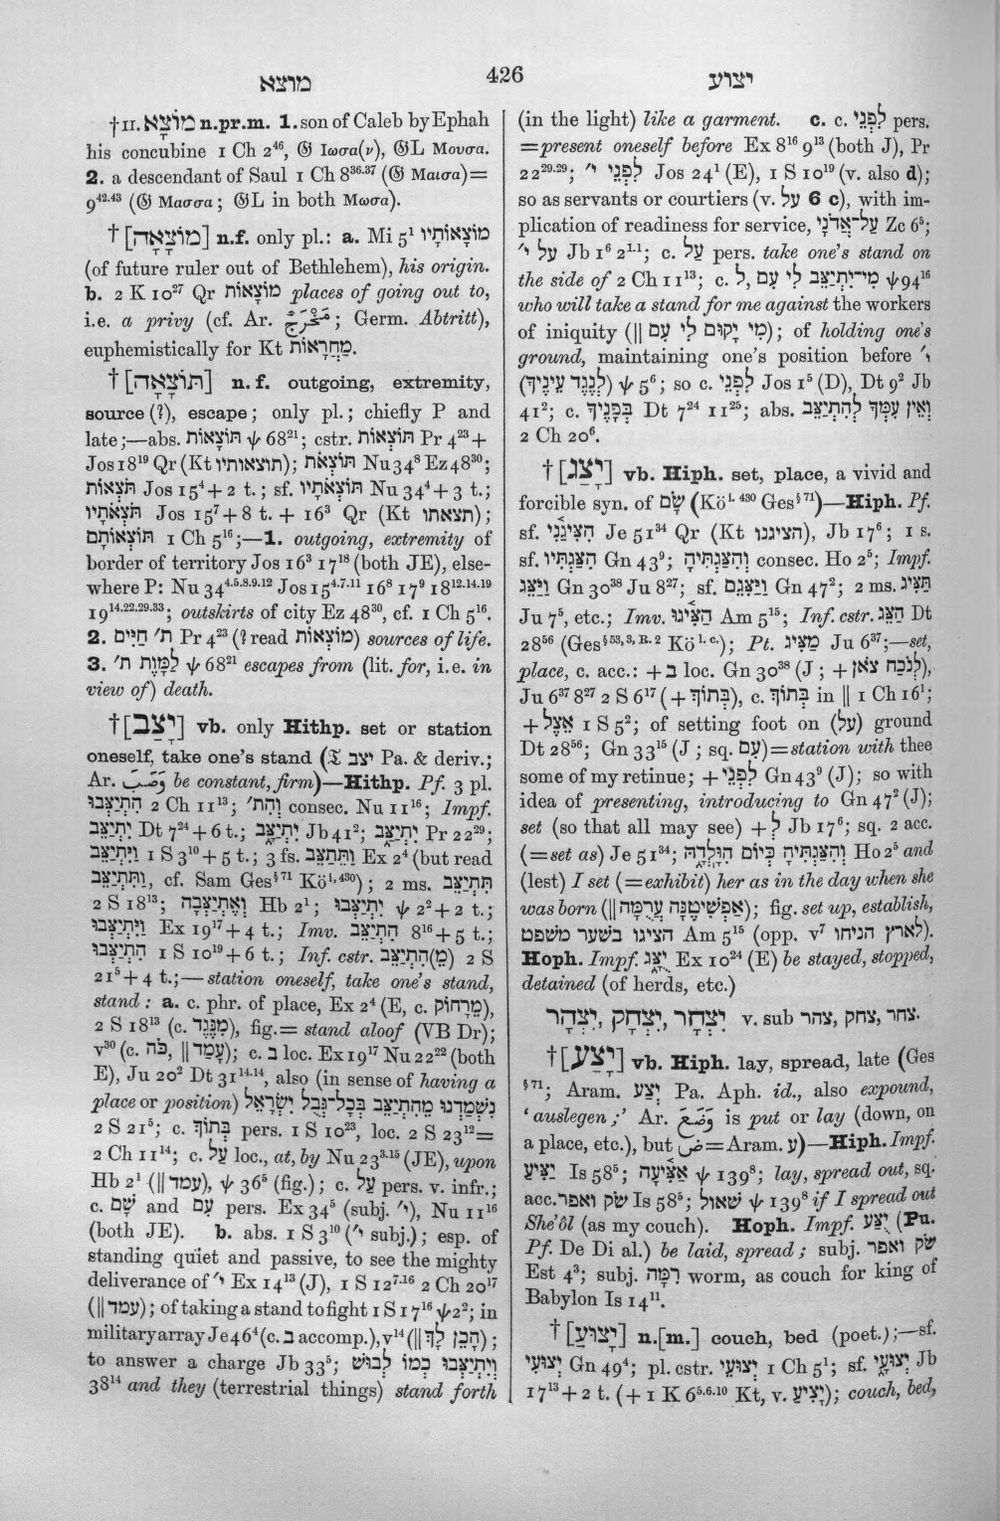 מוצא 426 יצוע
†II. מוֹצָא n.pr.m. 1. son of Caleb by Ephah
his concubine 1 Ch 2⁴⁶, 𝔊 Ιωσα(ν), 𝔊L Μουσα.
2. a descendant of Saul 1 Ch 8³⁶·³⁷ (𝔊 Μαισα)=
9⁴²·⁴³ (𝔊 Μασσα; 𝔊L in both Μωσα).
† [מוֹצָאָה] n.f. only pl.: a. Mi 5¹ מוֹצָאֹתָיו
(of future ruler out of Bethlehem), his origin.
b. 2 K 10²⁷ Qr מוֹצָאוֹת places of going out to,
i.e. a privy (cf. Ar. مَخْرَج; Germ. Abtritt),
euphemistically for Kt מַחֲרָאוֹת.
† [תּוֹצָאָה] n.f. outgoing, extremity,
source (?), escape; only pl.; chiefly P and
late;—abs. תּוֹצָאוֹת ψ 68²¹; cstr. תּוֹצְאוֹת Pr 4²³+
Jos 18¹⁹ Qr (Kt תוצאותיו); תּוֹצְאֹת Nu 34⁸ Ez 48³⁰;
תֹּצְאוֹת Jos 15⁴+2 t.; sf. תּוֹצְאֹתָיו Nu 34⁴+3 t.;
תֹּצְאֹתָיו Jos 15⁷+8 t. + 16³ Qr (Kt תצאתו);
תּוֹצְאוֹתָם 1 Ch 5¹⁶;—1. outgoing, extremity of
border of territory Jos 16³ 17¹⁸ (both JE), else-
where P: Nu 34⁴·⁵·⁸·⁹·¹² Jos 15⁴·⁷·¹¹ 16⁸ 17⁹ 18¹²·¹⁴·¹⁹
19¹⁴·²²·²⁹·³³; outskirts of city Ez 48³⁰, cf. 1 Ch 5¹⁶.
2. ת׳ חַיִּים Pr 4²³ (? read מוֹצָאוֹת) sources of life.
3. לַמָּוֶת ת׳ ψ 68²¹ escapes from (lit. for, i.e. in
view of) death.
†[יָצַב] vb. only Hithp. set or station
oneself, take one's stand (𝔗 יצב Pa. & deriv.;
Ar. وَصَبَ be constant, firm)—Hithp. Pf. 3 pl.
הִתְיַצְּבוּ 2 Ch 11¹³; וְהִת׳ consec. Nu 11¹⁶; Impf.
יִתְיַצֵּב Dt 7²⁴+6 t.; יִתְיַצָּב Jb 41²; יִתְיַצֵּב Pr 22²⁹;
וַיִּתְיַצֵּב 1 S 3¹⁰+5 t.; 3 fs. וַתֵּתַצַּב Ex 2⁴ (but read
וַתִּתְיַצֵּב, cf. Sam Ges§⁷¹ Köⁱ·⁴³⁰); 2 ms. תִּתְיַצֵּב
2 S 18¹³; וְאֶתְיַצְּבָה Hb 2¹; יִתְיַצְּבוּ ψ 2²+2 t.;
וַיִּתְיַצְּבוּ Ex 19¹⁷+4 t.; Imv. הִתְיַצֵּב 8¹⁶+5 t.;
הִתְיַצְּבוּ 1 S 10¹⁹+6 t.; Inf. cstr. (מֵ)הִתְיַצֵּב 2 S
21⁵+4 t.;—station oneself, take one's stand,
stand: a. c. phr. of place, Ex 2⁴ (E, c. מֵרָחוֹק),
2 S 18¹³ (c. מִנֶּגֶד), fig.= stand aloof (VB Dr);
v³⁰ (c. כֹּה, || עָמַד); c. בּ loc. Ex 19¹⁷ Nu 22²² (both
E), Ju 20² Dt 31¹⁴·¹⁴, also (in sense of having a
place or position) נִשְׁמַדְנוּ מֵהִתְיַצֵּב בְּכָל־גְּבֻל יִשְׂרָאֵל
2 S 21⁵; c. בְּתוֹךְ pers. 1 S 10²³, loc. 2 S 23¹²=
2 Ch 11¹⁴; c. עַל loc., at, by Nu 23³·¹⁵ (JE), upon
Hb 2¹ (|| עמד), ψ 36⁵ (fig.); c. עַל pers. v. infr.;
c. שָׁם and עִם pers. Ex 34⁵ (subj. י׳), Nu 11¹⁶
(both JE). b. abs. 1 S 3¹⁰ (י׳ subj.); esp. of
standing quiet and passive, to see the mighty
deliverance of י׳ Ex 14¹³ (J), 1 S 12⁷·¹⁶ 2 Ch 20¹⁷
(|| עמד); of taking a stand to fight 1 S 17¹⁶ ψ 2²; in
military array Je 46⁴ (c. בּ accomp.), v¹⁴ (|| הָכֵן לָךְ);
to answer a charge Jb 33⁵; וְיִתְיַצְּבוּ כְּמוֹ לְבוּשׁ
38¹⁴ and they (terrestrial things) stand forth
(in the light) like a garment. c. c. לִפְנֵי pers.
=present oneself before Ex 8¹⁶ 9¹³ (both J), Pr
22²⁹·²⁹; לִפְנֵי י׳ Jos 24¹ (E), 1 S 10¹⁹ (v. also d);
so as servants or courtiers (v. עַל 6 c), with im-
plication of readiness for service, עַל־אֲדֹנָי Zc 6⁵;
עַל י׳ Jb 1⁶ 2¹·¹; c. עַל pers. take one's stand on
the side of 2 Ch 11¹³; c. לְ, עִם, מִי־יִתְיַצֵּב לִי עִם ψ 94¹⁶
who will take a stand for me against the workers
of iniquity (|| מִי יָקוּם לִי עִם); of holding one's
ground, maintaining one's position before י׳
(לְנֶגֶד עֵינֶיךָ) ψ 5⁶; so c. לִפְנֵי Jos 1⁵ (D), Dt 9² Jb
41²; c. בְּפָנֶיךָ Dt 7²⁴ 11²⁵; abs. וְאֵין עִמְּךָ לְהִתְיַצֵּב
2 Ch 20⁶.
† [יָצַג] vb. Hiph. set, place, a vivid and
forcible syn. of שִׂם (Köⁱ·⁴³⁰ Ges§⁷¹)—Hiph. Pf.
sf. הִצִּיגַנִי Je 51³⁴ Qr (Kt הציגנו), Jb 17⁶; 1 s.
sf. הִצַּגְתִּיו Gn 43⁹; וְהִצַּגְתִּיהָ consec. Ho 2⁵; Impf.
וַיַּצֵּג Gn 30³⁸ Ju 8²⁷; sf. וַיַּצִּגֵם Gn 47²; 2 ms. תַּצִּיג
Ju 7⁵, etc.; Imv. הַצִּיגוּ Am 5¹⁵; Inf. cstr. הַצֵּג Dt
28⁵⁶ (Ges§⁵³,³,ᴿ·² Köˡ·ᶜ·); Pt. מַצִּיג Ju 6³⁷;—set,
place, c. acc.: +בּ loc. Gn 30³⁸ (J; +לְנֹכַח צֹאן),
Ju 6³⁷ 8²⁷ 2 S 6¹⁷ (+בְּתוֹךְ), c. בְּתוֹךְ in || 1 Ch 16¹;
+אֵצֶל 1 S 5²; of setting foot on (עַל) ground
Dt 28⁵⁶; Gn 33¹⁵ (J; sq. עִם)=station with thee
some of my retinue; +לִפְנֵי Gn 43⁹ (J); so with
idea of presenting, introducing to Gn 47² (J);
set (so that all may see) +לְ Jb 17⁶; sq. 2 acc.
(=set as) Je 51³⁴; וְהִצַּגְתִּיהָ כְּיוֹם הִוָּלְדָהּ Ho 2⁵ and
(lest) I set (=exhibit) her as in the day when she
was born (|| אַפְשִׁיטֶנָּה עֲרֻמָּה); fig. set up, establish,
הציגו בשער משפט Am 5¹⁵ (opp. v⁷ לארץ הניחו).
Hoph. Impf. יֻצַּג Ex 10²⁴ (E) be stayed, stopped,
detained (of herds, etc.)
יִצְהָר, יִצְחָק, יִצְחַר v. sub צהר, צחק, צחר.
†[יָצַע] vb. Hiph. lay, spread, late (Ges
§⁷¹; Aram. יְצַע Pa. Aph. id., also expound,
'auslegen;' Ar. وَضَعَ is put or lay (down, on
a place, etc.), but ض=Aram. ע)—Hiph. Impf.
יַצִּיעַ Is 58⁵; אַצִּיעָה ψ 139⁸; lay, spread out, sq.
acc. שׂק ואפר Is 58⁵; שאול ψ 139⁸ if I spread out
She'ôl (as my couch). Hoph. Impf. יֻצַּע (Pu.
Pf. De Di al.) be laid, spread; subj. שׂק ואפר
Est 4³; subj. רִמָּה worm, as couch for king of
Babylon Is 14¹¹.
† [יָצוּעַ] n.[m.] couch, bed (poet.);—sf.
יְצוּעִי Gn 49⁴; pl. cstr. יְצוּעֵי 1 Ch 5¹; sf. יְצוּעָי Jb
17¹³+2 t. (+1 K 6⁵·⁶·¹⁰ Kt, v. יָצִיעַ); couch, bed,